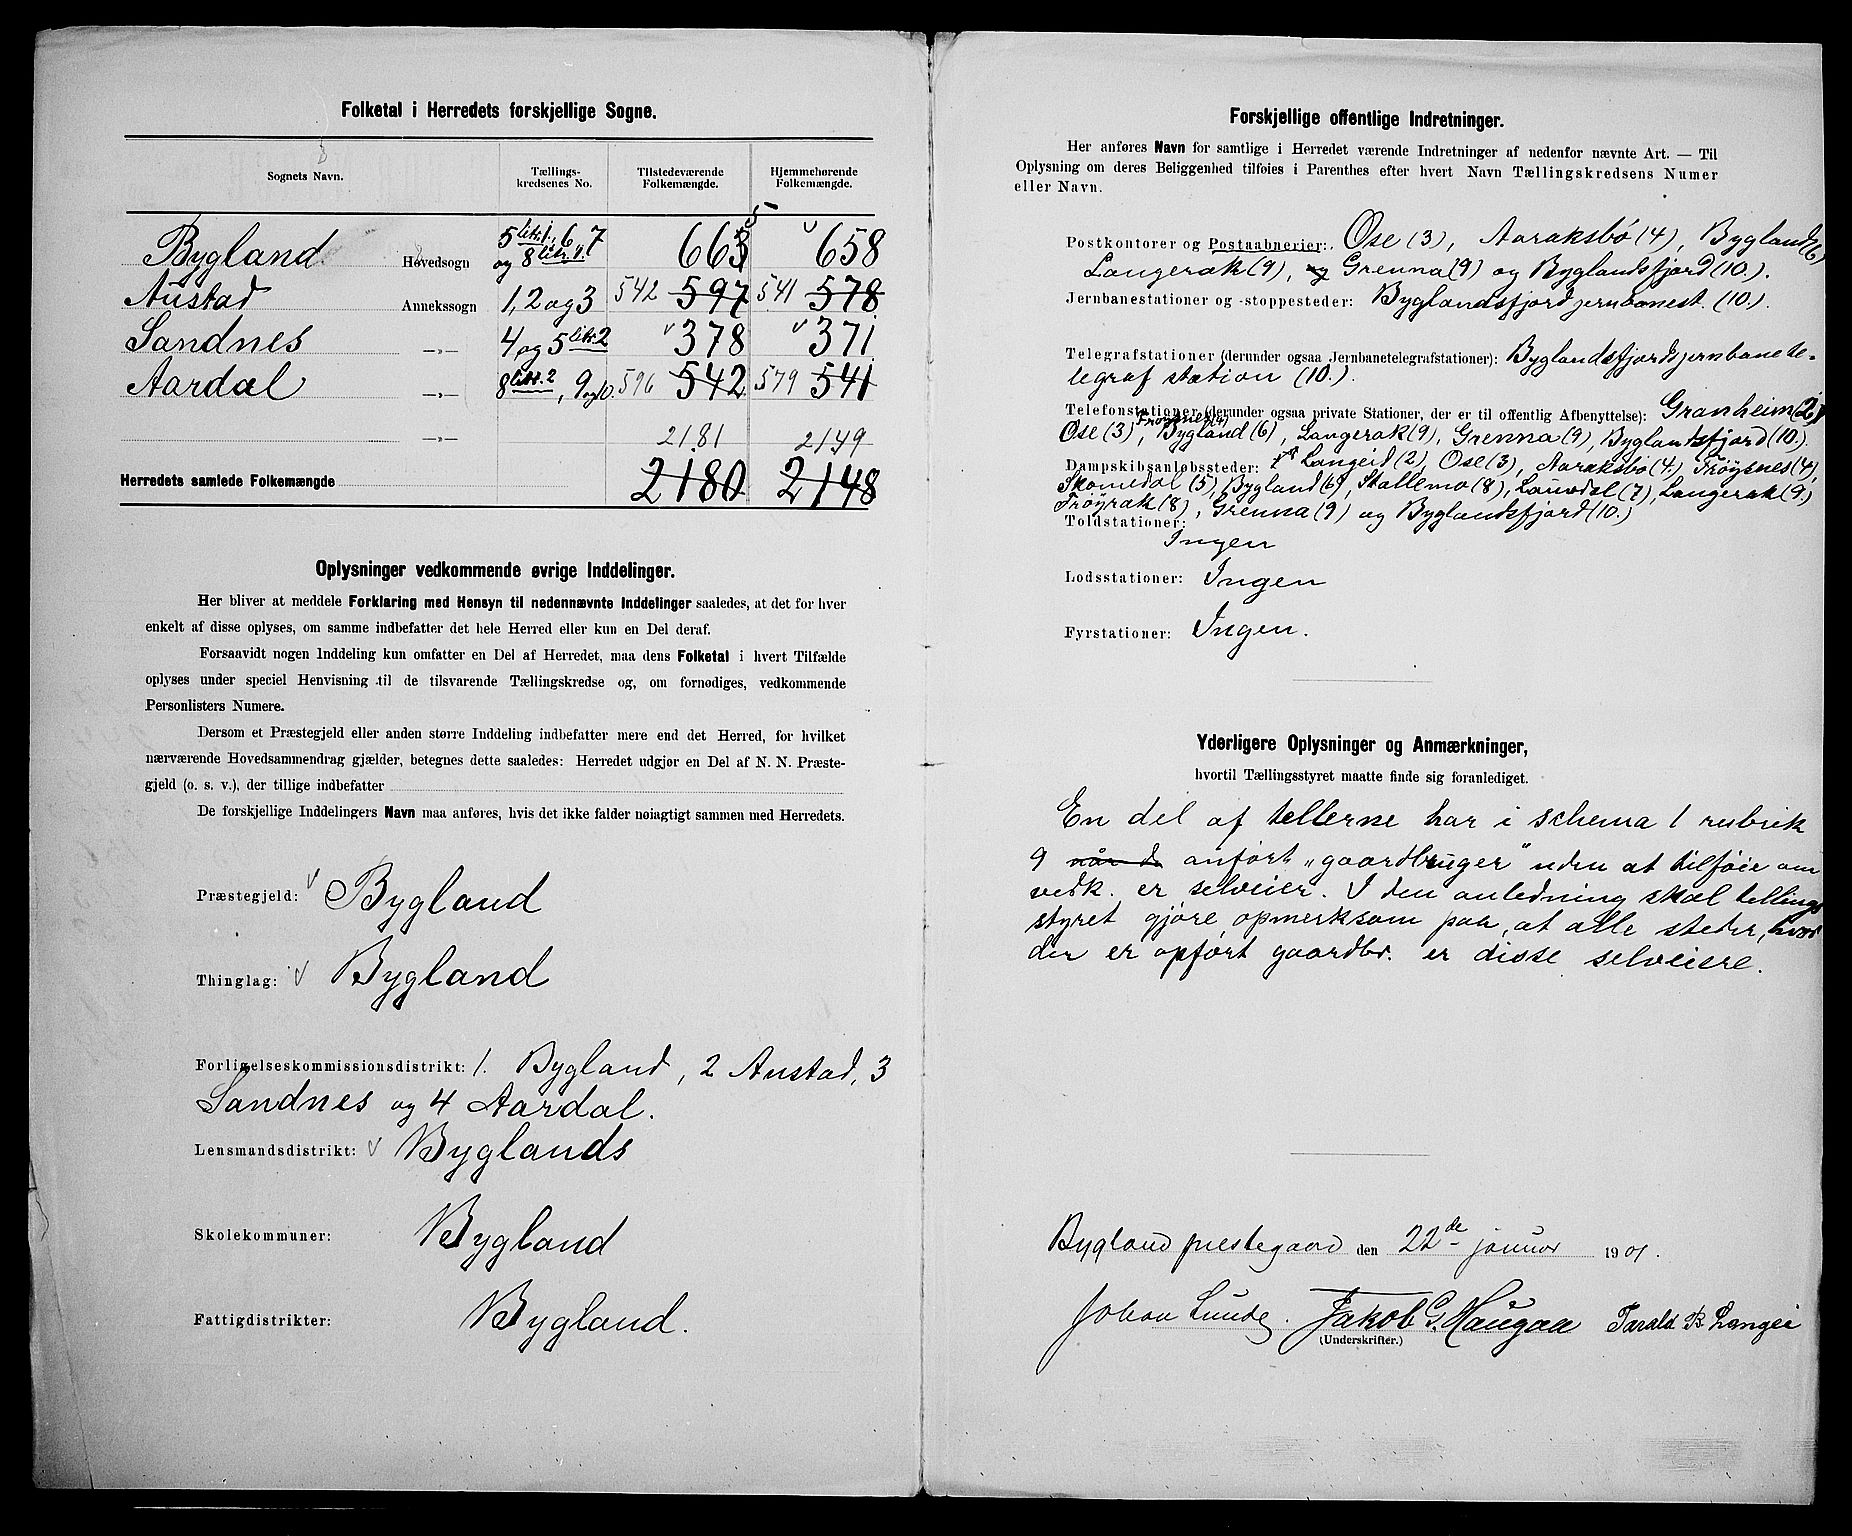 Folketal i Herredets forskjellige Sogne.
Sognets Navn.
Tællings-
kredsenes No.
Tilstedeværende
Folkemængde.
Hjemmehørende
Folkemængde.
Bygland Hovedsogn 5 litr. 1, 6, 7 og 8 litr. 1. 663 5 658
Austad Annekssogn 1, 2 og 3 542 597 541 578
Sandnes —„— 4 og 5 litr. 2 378 371
Aardal —„— 8 litr. 2, 9 og 10. 596 542 579 541
—„— 2181 2149
Herredets samlede Folkemængde 2180 2148
Oplysninger vedkommende øvrige Inddelinger.
Her bliver at meddele Forklaring med Hensyn til nedennævnte Inddelinger saaledes, at det for hver
enkelt af disse oplyses, om samme indbefatter det hele Herred eller kun en Del deraf.
Forsaavidt nogen Inddeling kun omfatter en Del af Herredet, maa dens Folketal i hvert Tilfælde
oplyses under speciel Henvisning til de tilsvarende Tællingskredse og, om fornødiges, vedkommende
Personlisters Numere.
Dersom et Præstegjeld eller anden større Inddeling indbefatter mere end det Herred, for hvilket
nærværende Hovedsammendrag gjælder, betegnes dette saaledes: Herredet udgjør en Del af N. N. Præste-
gjeld (o. s. v.), der tillige indbefatter
De forskjellige Inddelingers Navn maa anføres, hvis det ikke falder nøiagtigt sammen med Herredets.
Præstegjeld: Bygland
Thinglag: Bygland
Forligelseskommissionsdistrikt: 1. Bygland, 2 Austad, 3
Sandnes og 4 Aardal.
Lensmandsdistrikt: Byglands
Skolekommuner: Bygland
Fattigdistrikter: Bygland.
Forskjellige offentlige Indretninger.
Her anføres Navn for samtlige i Herredet værende Indretninger af nedenfor nævnte Art. — Til
Oplysning om deres Beliggenhed tilføies i Parenthes efter hvert Navn Tællingskredsens Numer
eller Navn.
Postkontorer og Postaabnerier: Ose (3), Aaraksbö (4), Bygland (6)
Langerak (9), og Grenna (9) og Byglandsfjord (10.).
Jernbanestationer og -stoppesteder: Byglandsfjord jernbanest. (10.)
Telegrafstationer (derunder ogsaa Jernbanetelegrafstationer): Byglandsfjords jernbanete-
legraf station (10.).
Telefonstationer (derunder ogsaa private Stationer, der er til offentlig Afbenyttelse): Granheim (2),
Ose (3), Fröysnes (4), Bygland (6), Langerak (9), Grenna (9), Byglandsfjord (10.).
Dampskibsanløbssteder: Langeid (2), Ose (3), Aaraksbö (4.) Fröysnes (4),
Skomedal (5), Bygland (6), Skallemo (8), Lauvdal (7), Langerak (9.)
Fröyrak (8), Grenna (9) og Byglandsfjord (10.)
Toldstationer:
Ingen
Lodsstationer: Ingen
Fyrstationer: Ingen.
Yderligere Oplysninger og Anmærkninger,
hvortil Tællingsstyret maatte finde sig foranlediget.
En del af tellerne har i schema 1 rubrik
9 når de anført „gaardbruger" uden at tilføie om
vedk. er selveier. I den anledning skal tellings
styret gjøre opmerksom paa, at alle steder, hvor
der er opført gaardbr. er disse selveiere.
Bygland prestegaard den 22de januar 1901.
Johan Lunde. Jakob G. Haugaa Tarald B. Langei
(Underskrifter.)